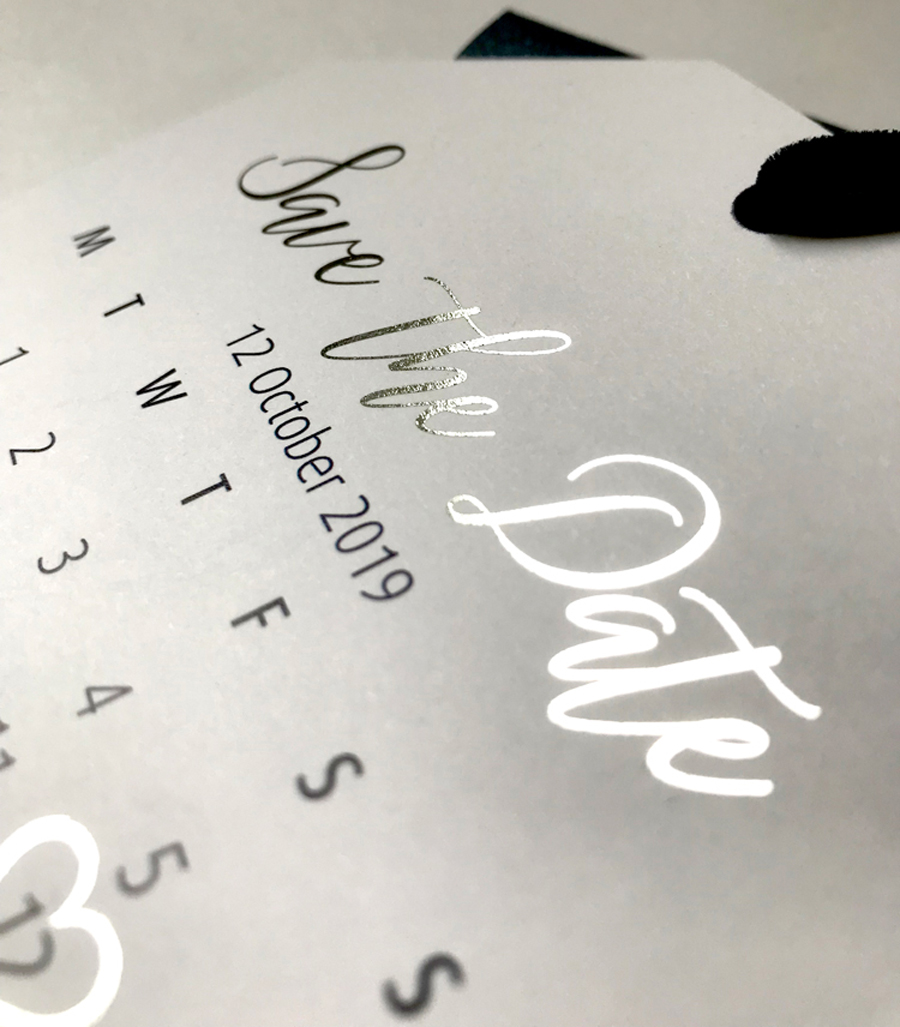 Save the Date
12 October 2019
M T W T F S S
1 2 3 4 5
11 12